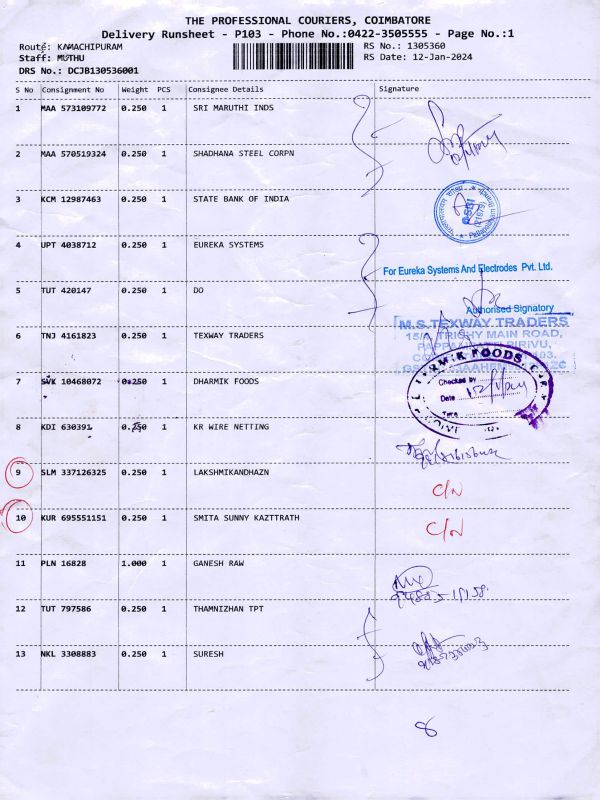 THE PROFESSIONAL COURIERS, COIMBATORE
Delivery Runsheet - P103 - Phone No.:0422-3505555 - Page No.:1
Route: KAMACHIPURAM
RS No.: 1305360
Staff: MUTHU
RS Date: 12-Jan-2024
DRS No.: DCJB130536001
S No Consignment No Weight PCS Consignee Details Signature
1 MAA 573109772 0.250 1 SRI MARUTHI INDS
2 MAA 570519324 0.250 1 SHADHANA STEEL CORPN
3 KCM 12987463 0.250 1 STATE BANK OF INDIA
4 UPT 4038712 0.250 1 EUREKA SYSTEMS
For Eureka Systems And Electrodes Pvt. Ltd.
5 TUT 420147 0.250 1 DO
Authorised Signatory
M.S.TEXWAY TRADERS
6 TNJ 4161823 0.250 1 TEXWAY TRADERS
TRICHY MAIN ROAD,
7 SVK 10468072 0.250 1 DHARMIK FOODS
Checked by
Date
Time
8 KDI 630391 0.250 1 KR WIRE NETTING
9 SLM 337126325 0.250 1 LAKSHMIKANDHAZN
C/N
10 KUR 695551151 0.250 1 SMITA SUNNY KAZTTRATH
C/N
11 PLN 16828 1.000 1 GANESH RAW
12 TUT 797586 0.250 1 THAMNIZHAN TPT
13 NKL 3308883 0.250 1 SURESH
8